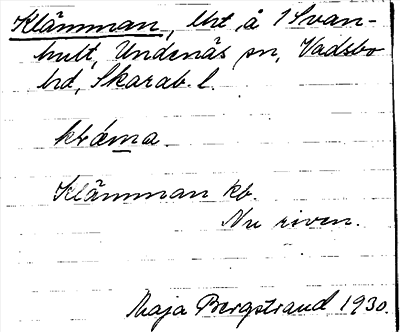 Klämman, lht å 1 Svan-
hult, Undenäs sn, Vadsbo
hd, Skarab. l.
klæ̀ma
Klämman kb.
Nu riven.
Maja Bergstrand 1930.